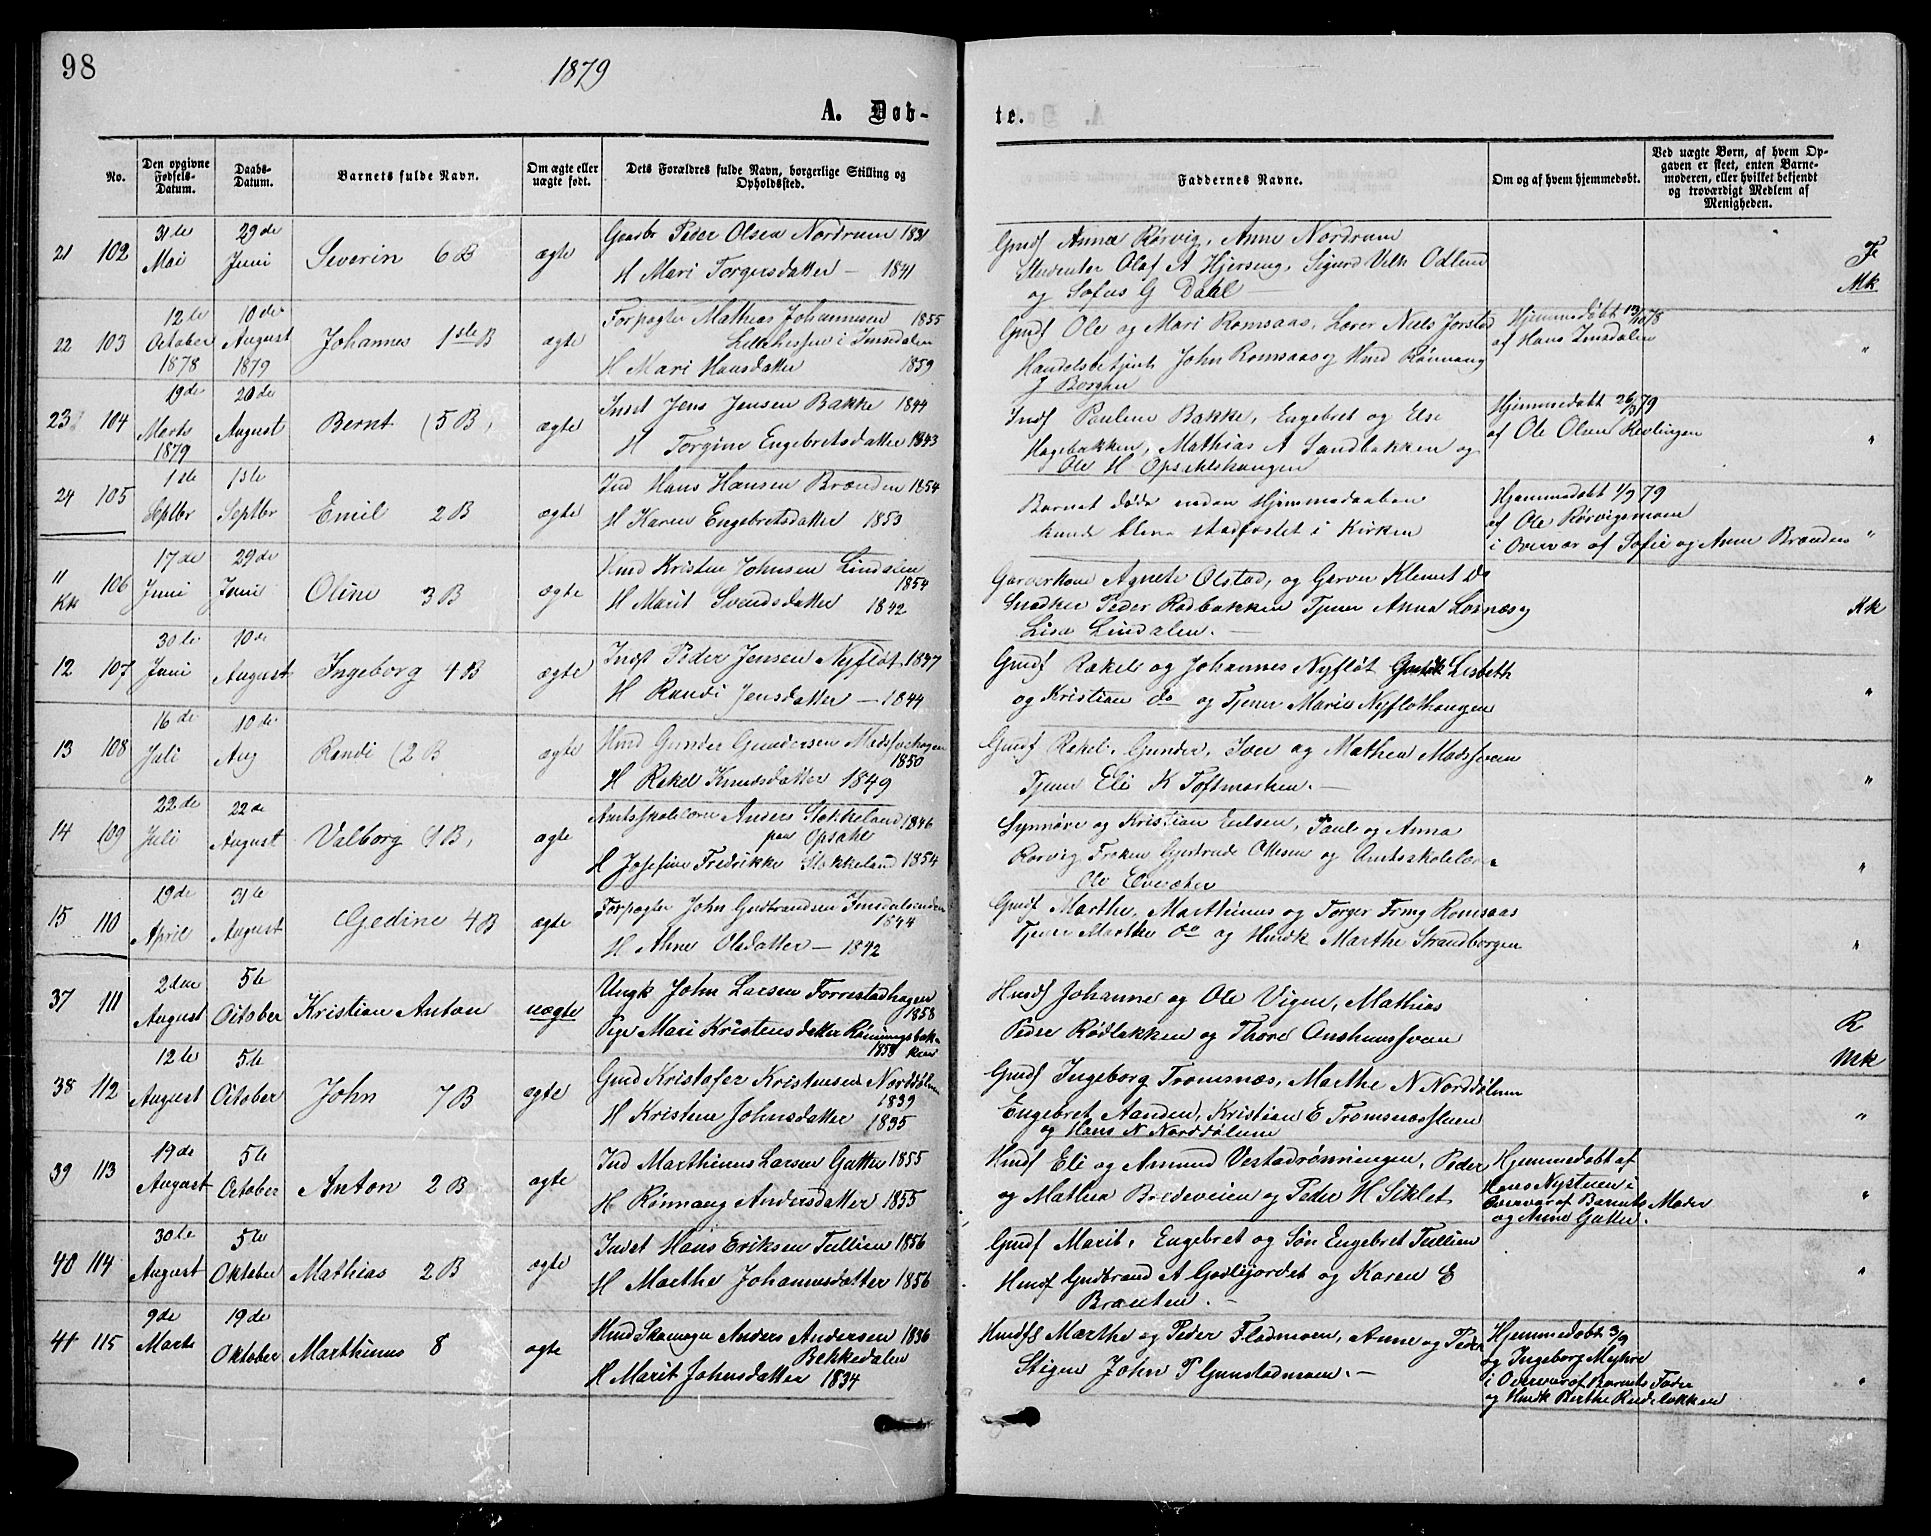 98
1879
A. Døb-
te.
No.
Den opgivne Fødsels-Datum.
Daabs-Datum.
Barnets fulde Navn.
Om ægte eller uægte født.
Dets Forældres fulde Navn, borgerlige Stilling og Opholdssted.
Faddernes Navne.
Om og af hvem hjemmedøbt.
Ved uægte Børn, af hvem Opgaven er skeet, enten Barnemoderen, eller hvilket bekjendt og troværdigt Medlem af Menigheden.
21 102 31te Mai 29de Juni Severin 6 B ægte
Gaardbr Peder Olsen Nordrum 1821
H Mari Torgersdatter - 1841
Gmdf Anne Rørvig, Anne Nordrum
Studenter Olaf A Hjerseng, Sigurd Vilh Odlund
og Sofus G Dahl
Fr
Mk
22 103 12te October 1878 10de August 1879 Johannes 1ste B ægte
Forpagter Mathias Johannesen 1855
Lillehessen i Imsdalen
H Mari Hansdatter 1859
Gmdf Ole og Mari Romsaas, Lærer Niels Jorstad
Handelsbetjent John Romsaas og Hmd Rønnaug
J Borghn
Hjemmedøbt 13/10 78
af Hans Imsdalen
"
23 104 19de Marts 1879 20de August Bernt (5 B, ægte
Indst Jens Jensen Bakke 1844
H Torgine Engebretsdatter 1843
Indf Pauline Bakke, Engebret og Else
Hagebakken, Mathias A Sandbakken og
Ole H Opsahlshaugen
Hjemmedøbt 26/3 79
af Ole Olsen Kevlingen
"
24 105 1ste Septbr 1ste Septbr Emil 2 B ægte
Ind Hans Hansen Brænden 1854
H Karen Engebretsdatter 1853
Barnet døde inden Hjemmedaaben
kunde blive stadfæstet i Kirken
Hjemmedøbt 1/9 79
af Ole Rørvigsmoen
i Overvær af Sofie og Anne Brænden "
11 Kk 106 17de Juni 29de Juni Oline 3 B ægte
Hmd Kristen Johnsen Lindalen 1854
H Marit Svendsdatter 1842
Garverkone Agnete Olstad, og Garver Klemet Do
Snedker Peder Rødbakken Tjener Anne Losnæs og
Lise Lindalen. -
Kk
12 107 30te Juni 10de August Ingeborg 4 B ægte
Indst Peder Jensen Nyfløt 1837
H Randi Jensdatter - 1844
Gmdf Rakel og Johannes Nyfløt Lisbeth
og Kristian do og Tjener Marie Nyfløthaugen
"
13 108 16de Juli 10de Aug Randi (2 B ægte
Hmd Gunder Gundersen Madsvehagen 1850
H Rakel Knudsdatter 1849
Gmdf Rakel, Gunder, Iver og Mathea Madssveen
Tjener Eli K Toftemarken. -
"
14 109 22de Juli 22de August Valborg 1 B, ægte
Amtsskolelærer Anders Stokkeland 1846
paa Opsahl
H Josefine Fredrikke Stokkeland 1854
Synnøve og Kristian Eulsen, Paul og Anna
Rørvig Frøken Gjertrude Ottesen og Amtsskolelærer
Ole Elvesæter
"
15 110 19de April 31te August Gedine 4 B ægte
Forpagter John Gudbrandsen Imsdalsenden 1844
H Ahne Olsdatter - 1842
Gmdf Marthe, Marthinus og Torger Frmg Romsaas
Tjener Marthe do og Hmdk Marthe Strandborgen
"
37 111 2den August 5te October Kristian Anton uægte
Ungk John Larsen Forrestadhagen 1858
Pige Mari Kristensdatter Rønningsbakken 1858
Hmdf Johanne og Ole Vigen, Mathias
Peder Rødlakken og Thore Onshuussveen
R
Mk
38 112 12te August 5te October John 7 B ægte
Gmd Kristofer Kristensen Norddølum 1839
H Kristine Johnsdatter 1835
Gmdf Ingeborg Tromsnæs, Marthe N Norddølum
Engebret Aanden, Kristian E Tromsnæssluen
og Hans N Norddølum
"
39 113 19de August 5te October Anton 2 B ægte
Ind Marthinus Larsen Gutter 1855
H Rønnaug Andersdatter 1855
Hmdf Eli og Amund Vestadrønningen, Peder
og Mathea Bredeveien og Peder H Siklet
Hjemmedøbt af
Hans Nystuen i
Overvær af Barnets Moder
og Anne Gutter.
"
40 114 30te August 5te Oktober Mathias 2 B ægte
Indst Hans Eriksen Tullien 1856
H Marthe Johannesdatter 1856
Gmdf Marit, Engebret og Søn Engebret Tullien
Hmdf Gudbrand A Godlijordet og Karen E
Braaten. -
"
41 115 9de Marts 19de Oktober Marthinus 8 ægte
Hmd Skomager Anders Andersen 1836
Bekkedalen
H Marit Johnsdatter 1834
Hmdfs Marthe og Peder Fladmoen, Anne og Peder
Stigen John P Gunstadmoen. -
Hjemmedøbt 3/9
og Ingeborg Myhre
i Overvær af Barnets Fader
og Hmdk Berthe Rudeløkken
"